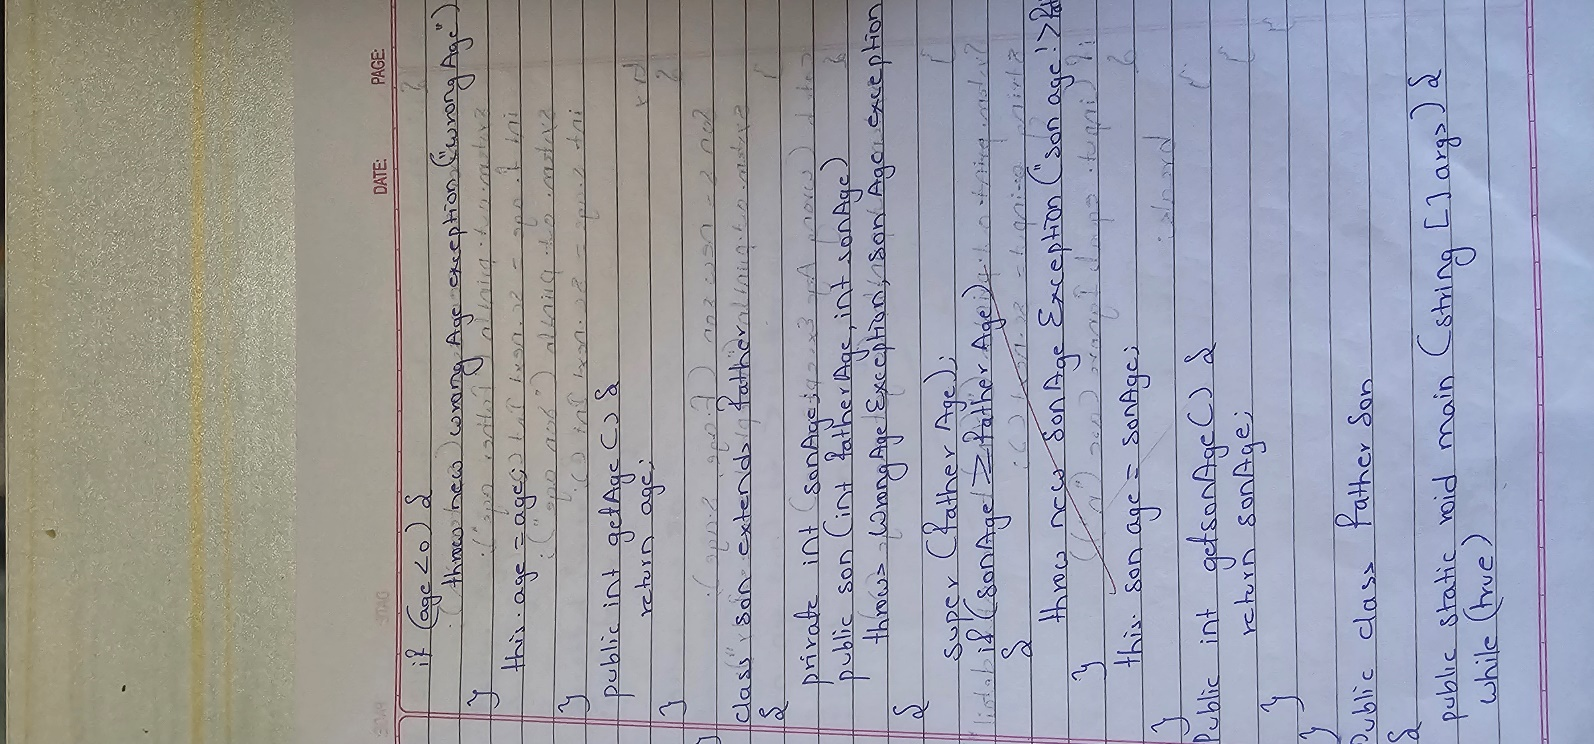 DATE: PAGE:
if (age < 0) {
throw new wrong Age exception ("wrong Age")
}
this.age = age;
}
public int getAge () {
return age;
}
class son extends father
{
private int sonAge;
public son (int fatherAge, int sonAge)
throws WrongAge Exception, Son Age exception
{
super (father Age);
if (sonAge ≥ father Age)
{
throw new SonAge Exception ("son age !>
}
this. son age = sonAge;
}
Public int getsonAge () {
return sonAge;
}
}
Public class father Son
{
public static void main (string [] args) {
while (true)